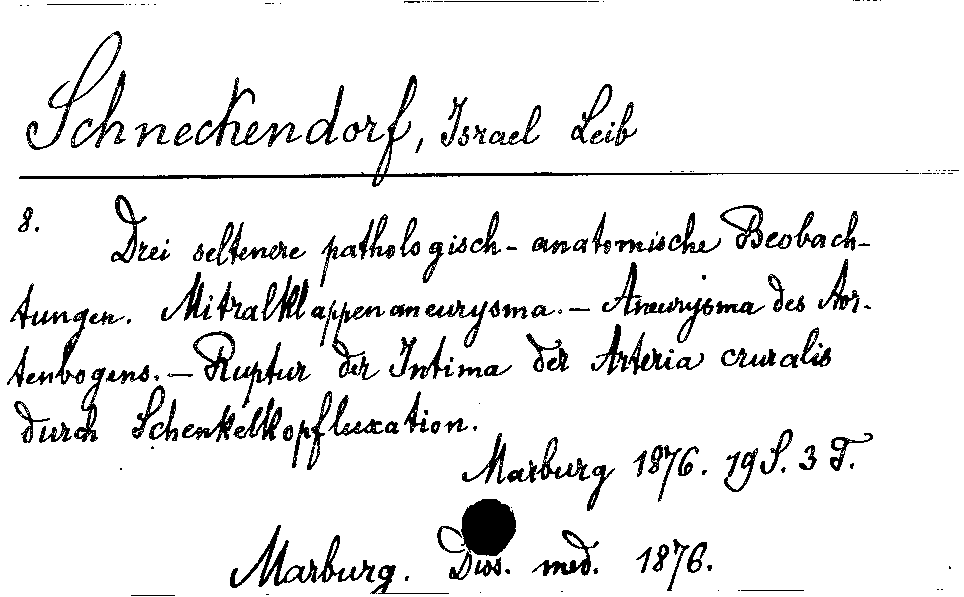 Schneckendorf, Israel Leib
8.
Drei seltenere pathologisch-anatomische Beobach-
tungen. Mitralklappenaneurysma. - Aneurysma des Aor-
tenbogens. - Ruptur der Intima der Arteria cruralis
durch Schenkelkopfluxation.
Marburg 1876. 19 S. 3 T.
Marburg. Diss. med. 1876.